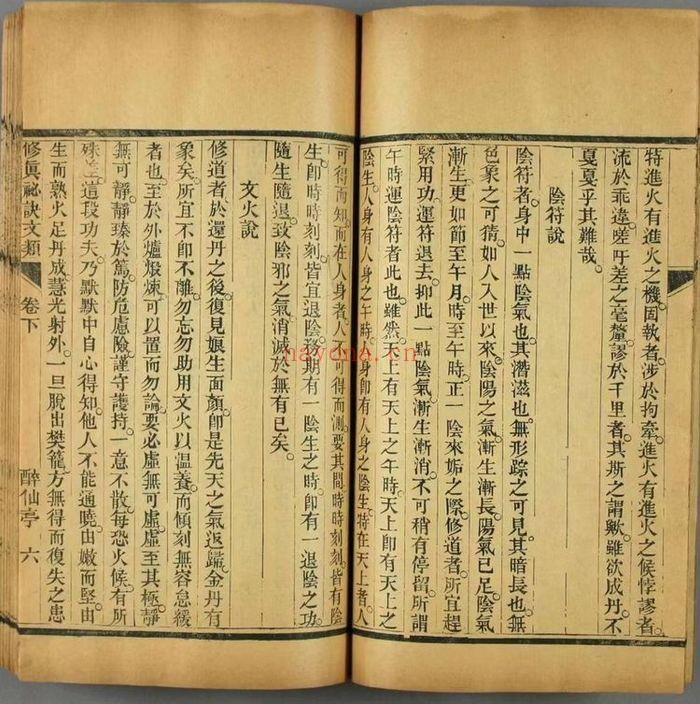 特進火有進火之機。固執者涉於拘牽。進火有進火之候。悖謬者。
流於乖違。嗟吁。差之毫釐。謬於千里者。其斯之謂歟。雖欲成丹。不
戛戛乎其難哉。
陰符說
陰符者。身中一點陰氣也。其潛滋也。無形踪之可見。其暗長也。無
色象之可猜。如人入世以來。陰陽之氣。漸生漸長。陽氣已足。陰氣
漸生。更如節至午月。時至午時。正一陰來姤之際。修道者。所宜趕
緊用功。運符退去。抑此一點陰氣。漸生漸消。不可稍有停留。所謂
午時運陰符者此也。雖然。天上有天上之午時。天上卽有天上之
陰生。人身有人身之午時。人身卽有人身之陰生。特在天上者。人
可得而知。而在人身者。人不可得而測。要其間時時刻刻。皆有陰
生。卽時時刻刻。皆宜退陰。務期有一陰生之時。卽有一退陰之功。
隨生隨退。致陰邪之氣。消滅於無有已矣。
文火說
修道者。於還丹之後。復見娘生面顏。卽是先天之氣返歸。金丹有
象矣。所宜不卽不離。勿忘勿助。用文火以溫養。而傾刻無容怠緩
者也。至於外爐煅煉。可以置而勿論。要必虛無可虛。虛至其極。靜
無可靜。靜臻於篤。防危慮險。謹守護持。一意不散。每恐火候。有所
殊差。這段功夫。乃默默中自心得知。他人不能通曉。由嫩而堅。由
生而熟。火足丹成。慧光射外。一旦脫出樊籠。方無得而復失之患
修眞祕訣文類
卷下
醉仙亭
六
nayona.cn